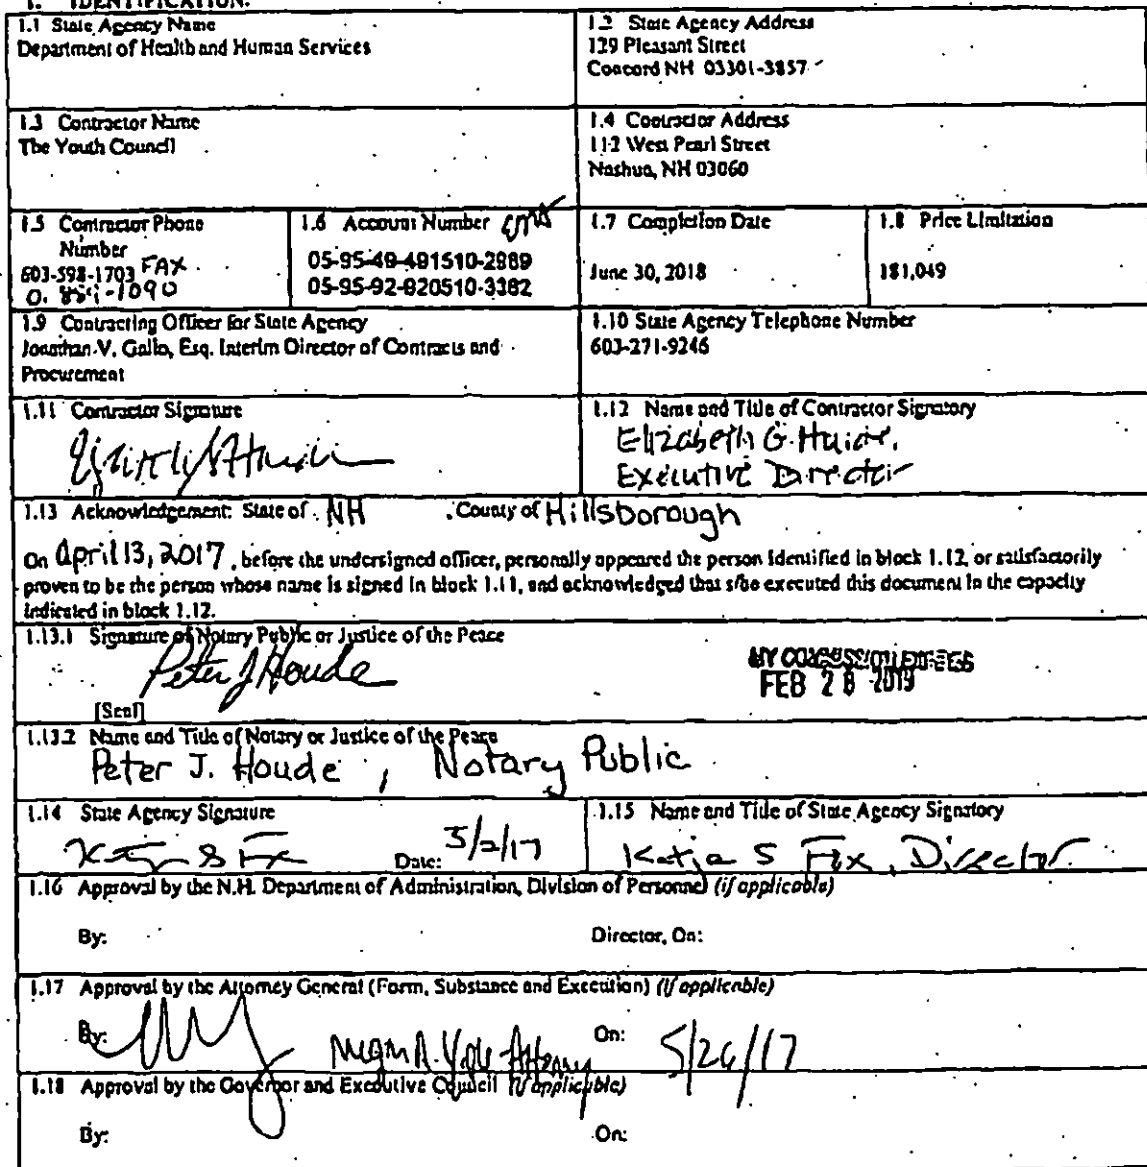 1. IDENTIFICATION.
1.1 State Agency Name
Department of Health and Human Services
1.2 State Agency Address
129 Pleasant Street
Concord NH 03301-3857
1.3 Contractor Name
The Youth Council
1.4 Contractor Address
112 West Pearl Street
Nashua, NH 03060
1.5 Contractor Phone
Number
603-598-1703 FAX
O. 889-1090
1.6 Account Number
05-95-49-491510-2989
05-95-92-920510-3382
1.7 Completion Date
June 30, 2018
1.8 Price Limitation
181,049
1.9 Contracting Officer for State Agency
Jonathan V. Gallo, Esq. Interim Director of Contracts and
Procurement
1.10 State Agency Telephone Number
603-271-9246
1.11 Contractor Signature
1.12 Name and Title of Contractor Signatory
Elizabeth G. Houde,
Executive Director
1.13 Acknowledgement: State of NH County of Hillsborough
On April 13, 2017, before the undersigned officer, personally appeared the person identified in block 1.12, or satisfactorily
proven to be the person whose name is signed in block 1.11, and acknowledged that s/he executed this document in the capacity
indicated in block 1.12.
1.13.1 Signature of Notary Public or Justice of the Peace
Peter J Houde
MY COMMISSION EXPIRES
FEB 28 2019
[Seal]
1.13.2 Name and Title of Notary or Justice of the Peace
Peter J. Houde, Notary Public
1.14 State Agency Signature
Date: 5/2/17
1.15 Name and Title of State Agency Signatory
Katja S Fox, Director
1.16 Approval by the N.H. Department of Administration, Division of Personnel (if applicable)
By: Director, On:
1.17 Approval by the Attorney General (Form, Substance and Execution) (if applicable)
By: On: 5/26/17
1.18 Approval by the Governor and Executive Council (if applicable)
By: On: